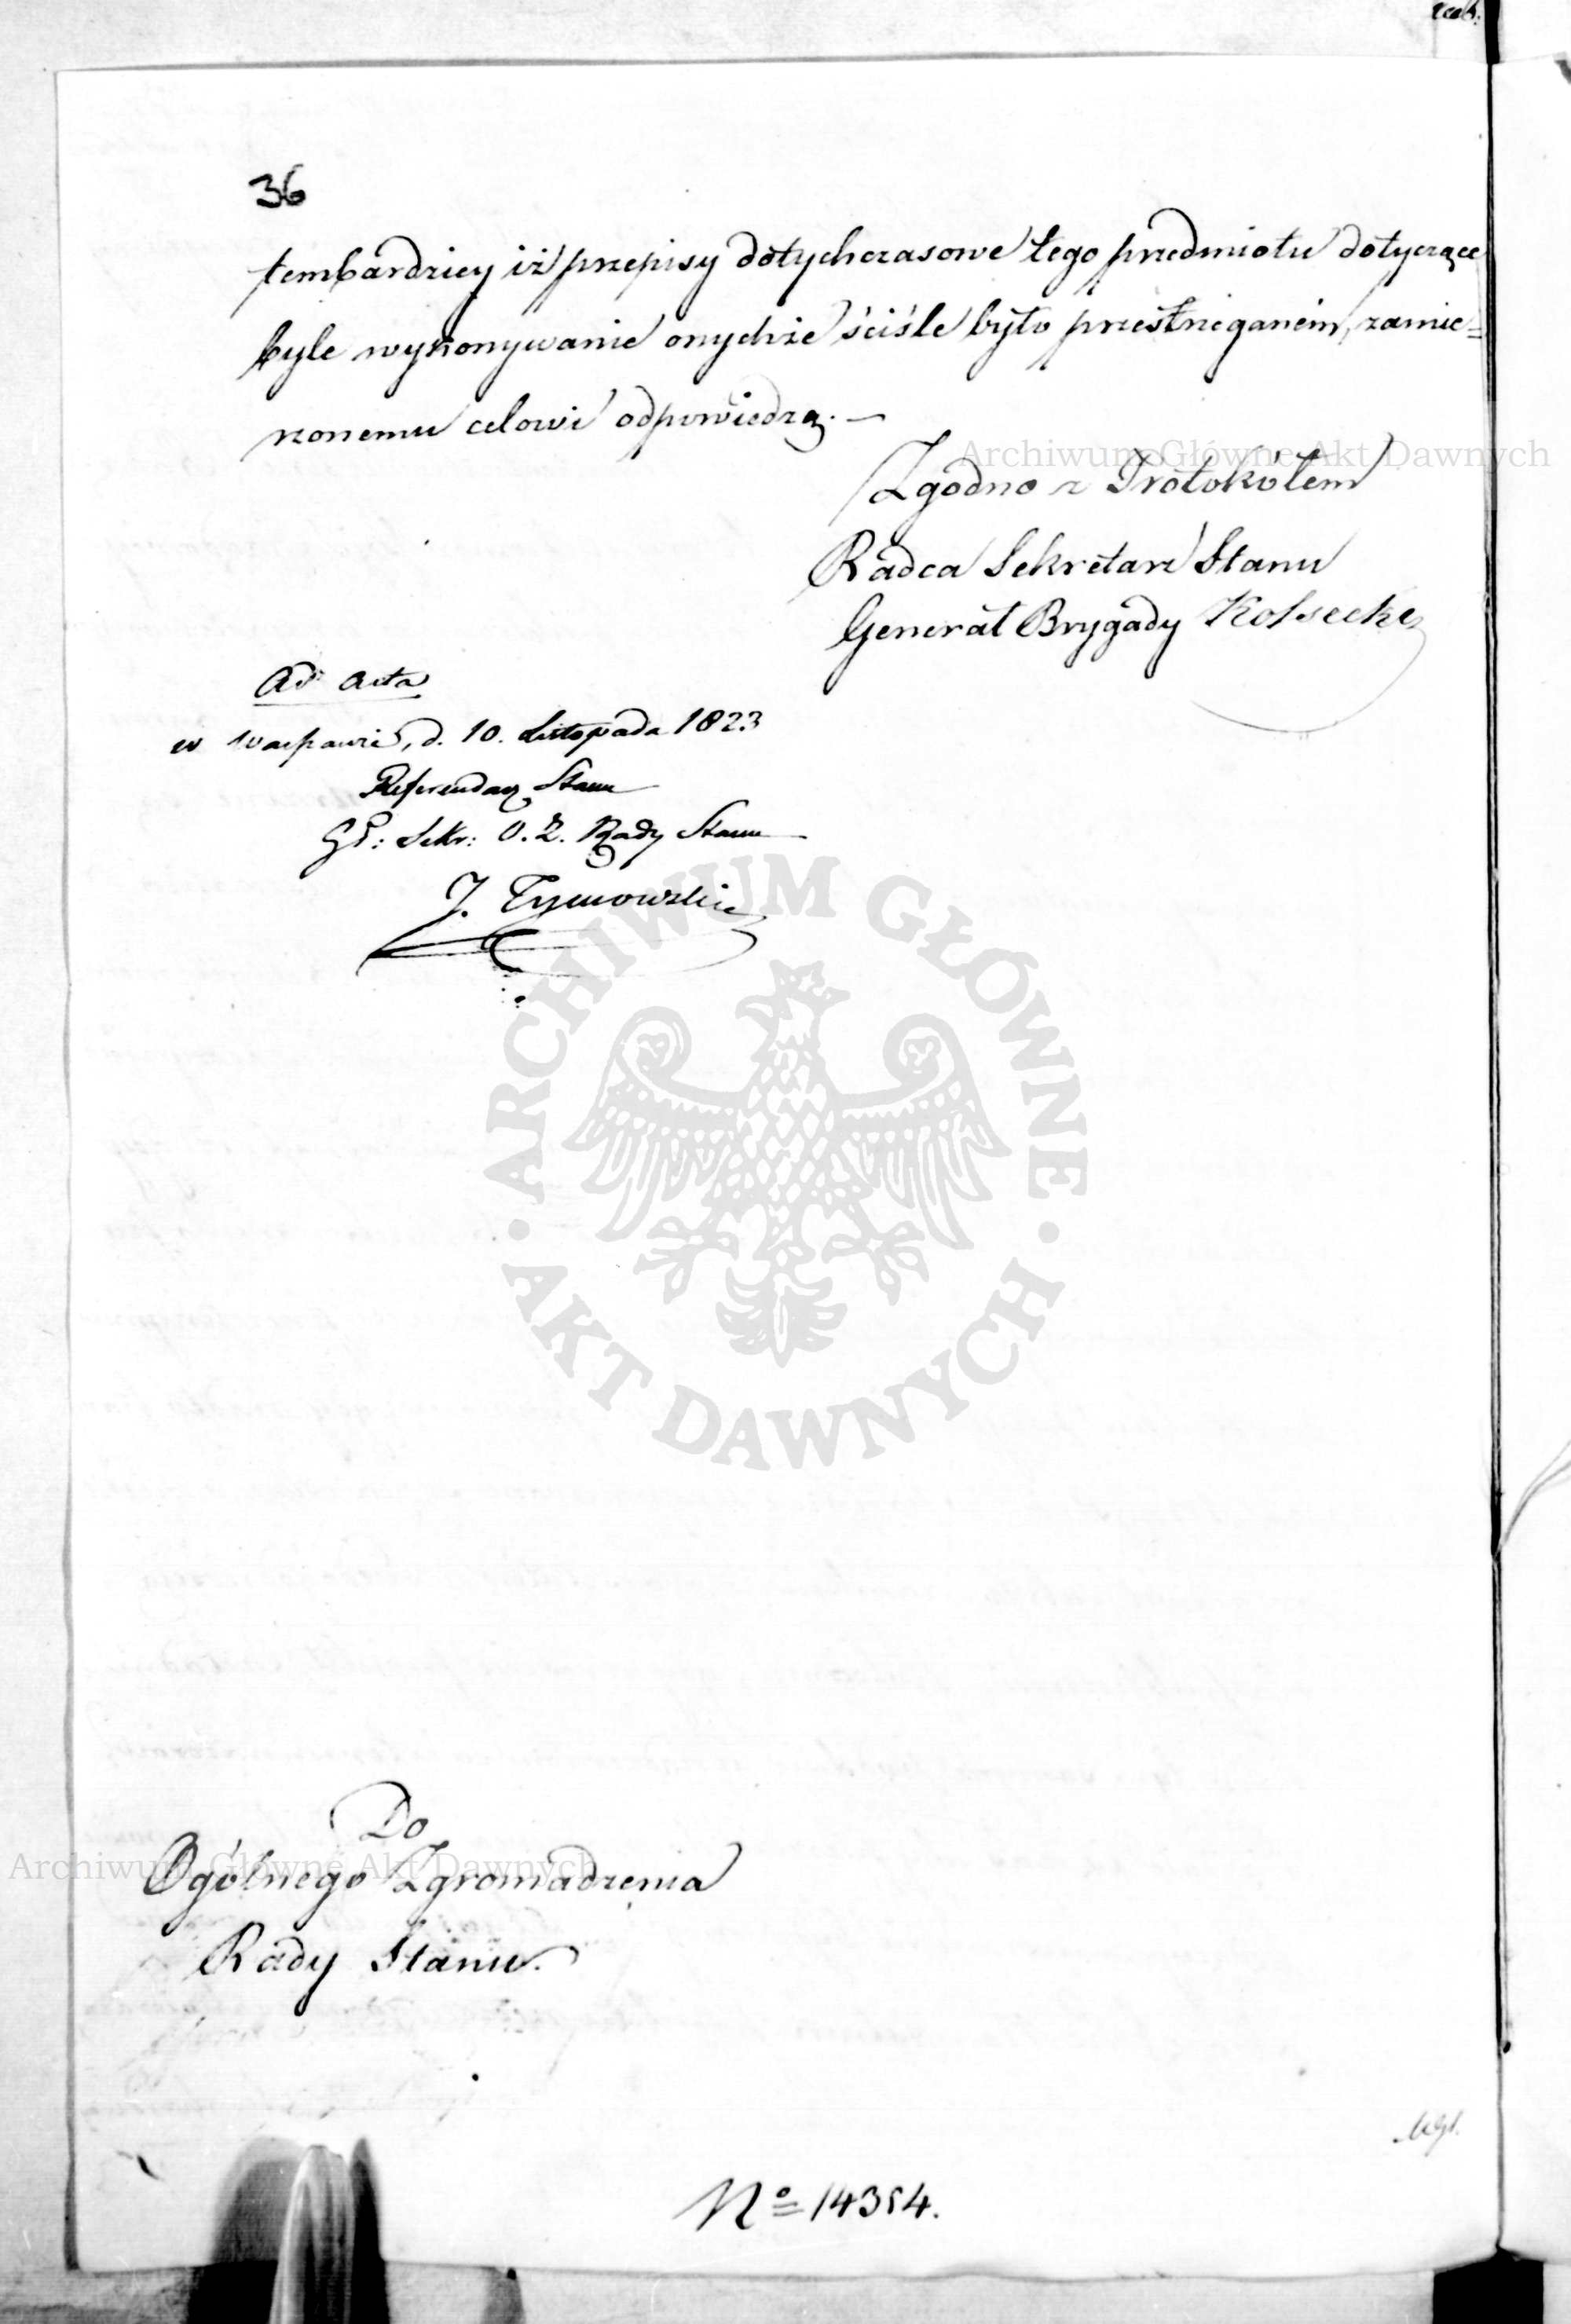 36
tembardziey iż przepisy dotychczasowe tego przedmiotu dotyczące
byle wykonywanie onychże ściśle było przestrzeganem, zamie=
rzonemu celowi odpowiedzą. —
Zgodno z Protokółem
Radca Sekretarz Stanu
Generał Brygady Kossecki
Ad acta
w Warszawie, d. 10. Listopada 1823
Referendarz Stanu
Gł: Sekr: O. Z. Rady Stanu
J. Tymowski
Do
Ogólnego Zgromadzenia
Rady Stanu.
No 14354.
Archiwum Główne Akt Dawnych
ARCHIWUM GŁÓWNE
AKT DAWNYCH
Archiwum Główne Akt Dawnych